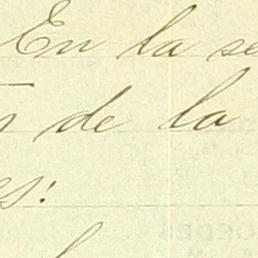 En la se
de la
es: